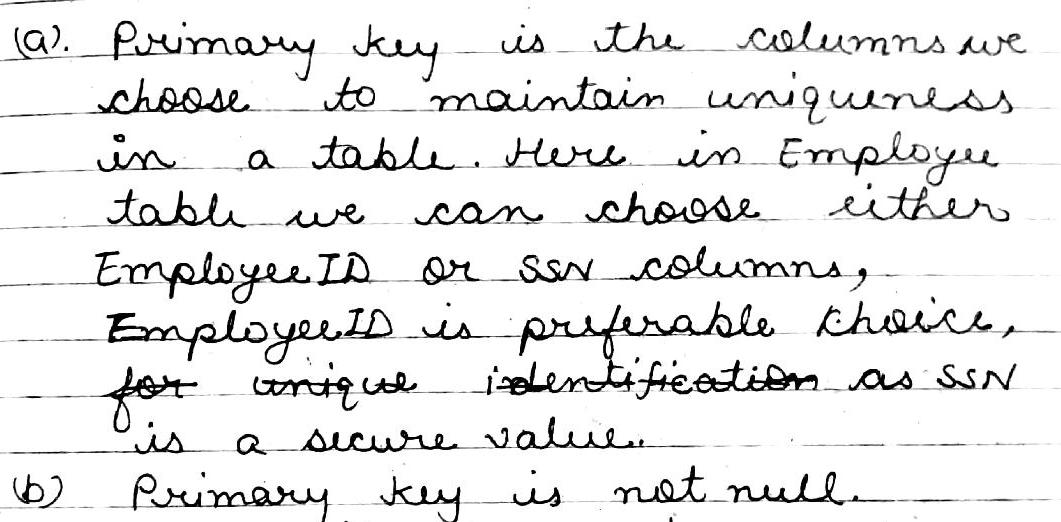 (a). Primary key is the columns we
choose to maintain uniqueness
in a table. Here in Employee
table we can choose either
EmployeeID or SSN columns,
EmployeeID is preferable choice,
for unique identification as SSN
is a secure value.
(b) Primary key is not null.